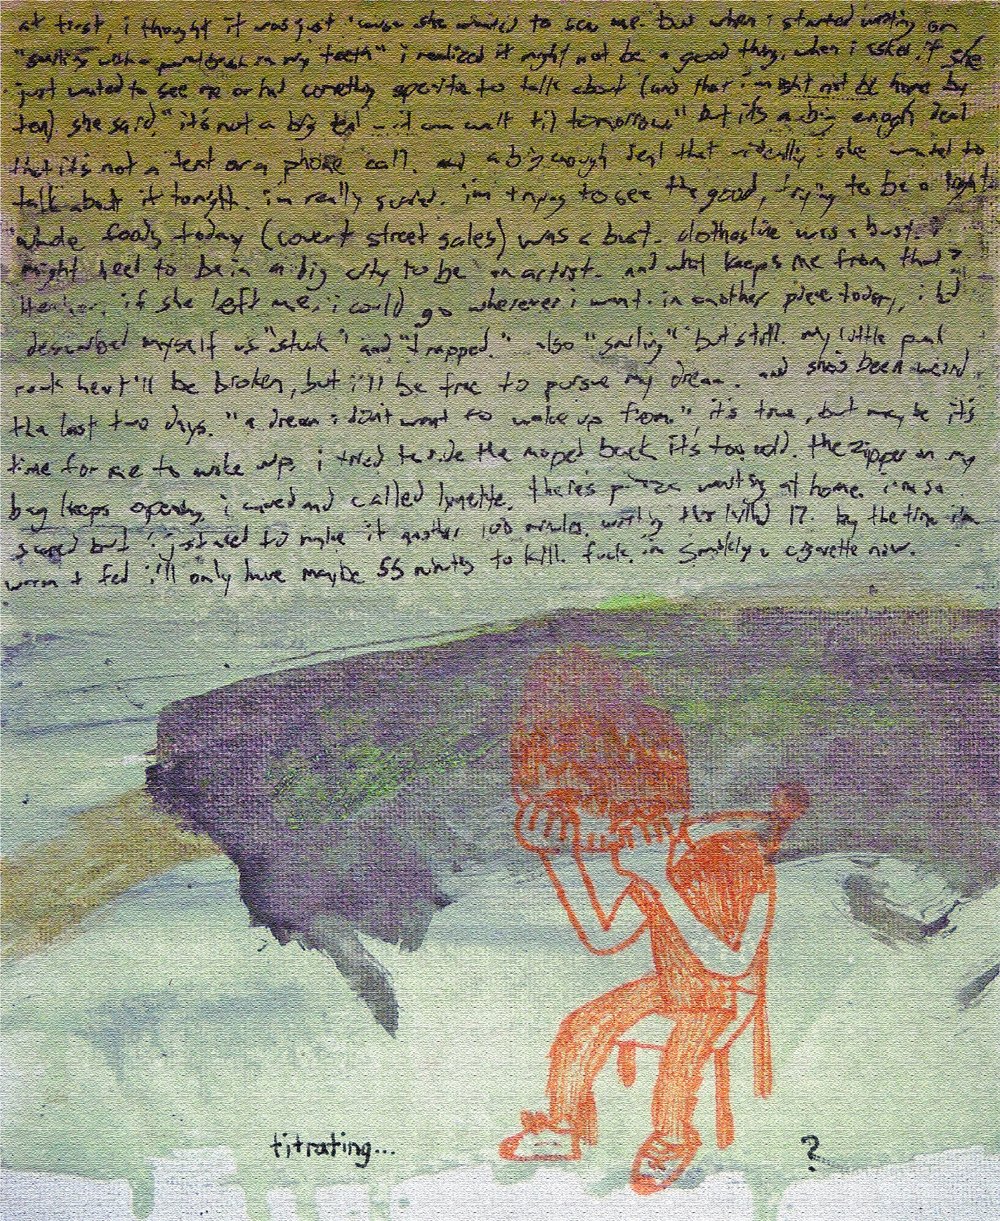 at first, i thought it was just 'cause she wanted to see me. but when i started writing on
"smiling with a in my teeth" i realized it might not be a good thing. when i asked if she
just wanted to see me or had something specific to talk about (and that i might not be home by
ten) she said, "it's not a big deal - it can wait til tomorrow" but it's a big enough deal
that it's not a text or a phone call. and a big enough deal that ideally she wanted to
talk about it tonight. i'm really scared. i'm trying to see the good, trying to be a light.
whole foods today (covert street sales) was a bust. clothesline was a bust. i
might need to be in a big city to be an artist. and what keeps me from that?
Heather. if she left me, i could go wherever i want. in another piece today, i'd
described myself as "stuck" and "trapped." also "smiling" but still. my little punk
rock heart'll be broken, but i'll be free to pursue my dream. and she's been weird
the last two days. "a dream i don't want to wake up from." it's true, but maybe it's
time for me to wake up. i tried to ride the moped back it's too cold. the zipper on my
bag keeps opening. i caved and called lynette. there's pizza waiting at home. i'm so
scared but i just need to make it another 100 minutes. by the time i'm
warm + fed i'll only have maybe 55 minutes to kill. fuck. i'm smoking a cigarette now.
titrating... ?